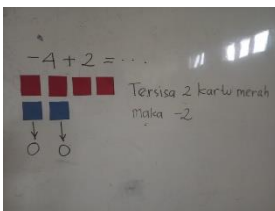 -4 + 2 = ...
Tersisa 2 kartu merah
maka -2
0 0